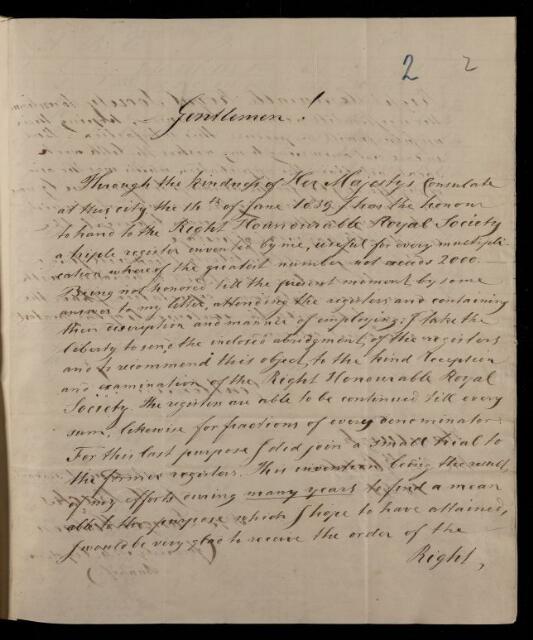 2 2
Gentlemen!
Through the kindness of Her Majesty's Consulate
at this city the 14th of June 1839 I has the honour
to hand to the Right Hounourable Royal Society
a triple register invented by me, useful for every multipli-
cation whereof the greatest number not exceeds 2000.
Being not honored till the present moment by some
answer to my letter, attending the registers and containing
their discription and manner of employing; I take the
liberty to send the inclosed abridgment of the registers
and to recommend this object, to the kind Reception
and examination of the Right Honourable Royal
Society. The registers are able to be continued till every
sum, likewise for fractions of every denominator.
For this last purpose I did join a small trial to
the former registers. This invention being the result
of my efforts during many years to find a mean
able to the purpose which I hope to have attained,
I would be very glad to receive the order of the
Right,